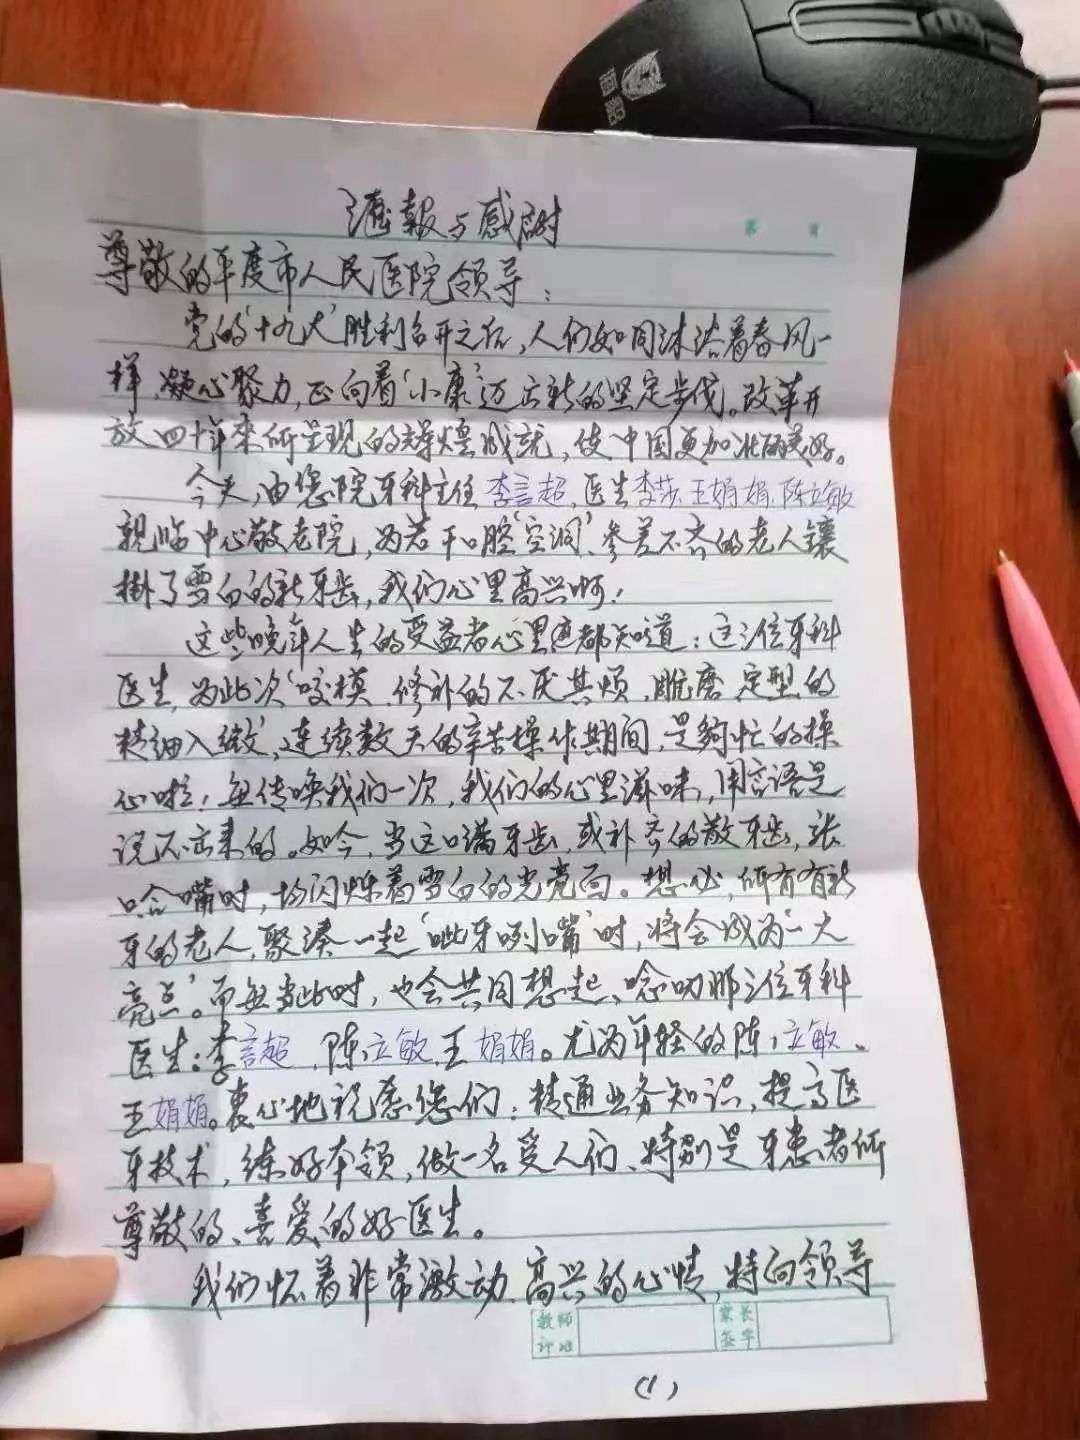 滙報与感謝
第 頁
尊敬的平度市人民医院领导：
党的‘十九大’胜利召开之后，人们如同沐浴着春风一
样，凝心聚力，正向着‘小康’迈出新的坚定步伐。改革开
放四十年来所呈现的辉煌成就，使中国更加壮丽美好。
今天，由您院牙科主任李言超，医生李莎、王娟娟、陈立敏
親临中心敬老院，为若干口腔‘空洞’、参差不齐的老人镶
掛了雪白的新牙齿，我们心里高兴啊！
这些晚年人生的受益者心里这都知道：这三位牙科
医生，为此次‘咬模、修补的不厌其烦，雕磨定型的
精细入微’，连续数天的辛苦操作期间，是夠忙的操
心啦！每传唤我们一次，我们的心里滋味，用言语是
说不出来的。如今，当这口满牙齿，或补齐的散牙齿，张
口合嘴时，均闪烁着雪白的光亮面。想必，所有有新
牙的老人，聚凑一起‘呲牙咧嘴’时，将会成为‘一大
亮点’。而每当此时，也会共同想起、唸叨那三位牙科
医生：李言超、陈立敏、王娟娟。尤为年轻的陈立敏、
王娟娟。衷心地祝愿您们：精通业务知识，提高医
牙技术，练好本领，做一名受人们、特别是牙患者所
尊敬的、喜爱的好医生。
我们怀着非常激动、高兴的心情，特向领导
教师 家长
评语 签字
(1)